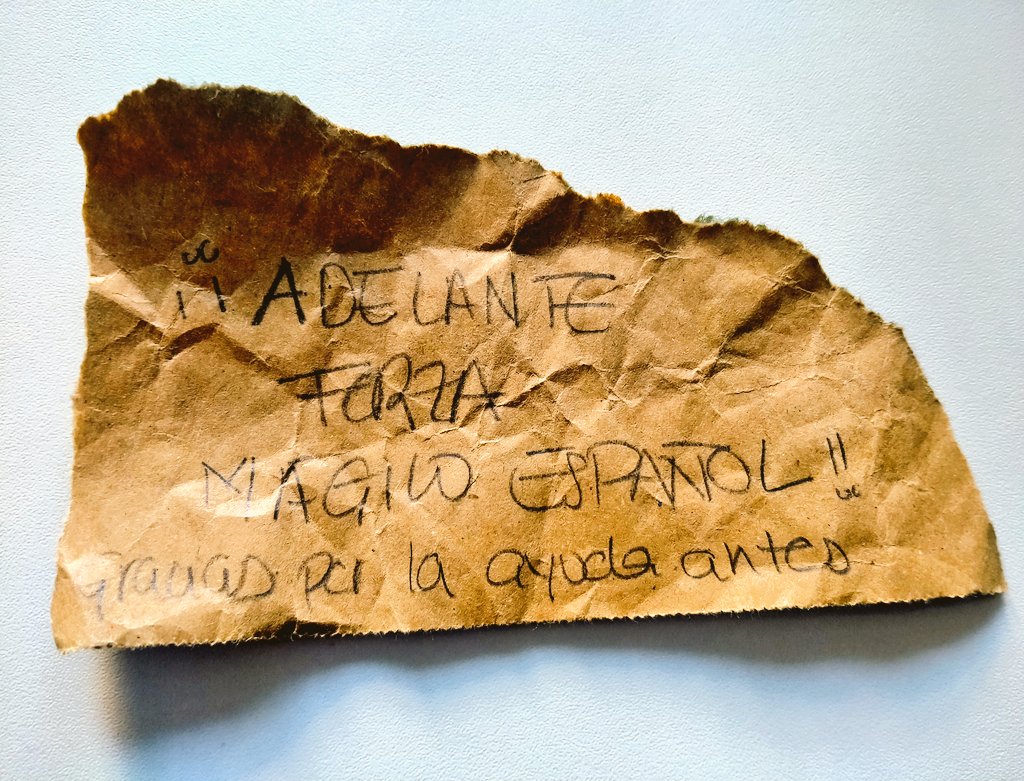 ¡¡ ADELANTE
FORZA
MAGICO ESPAÑOL !!
gracias por la ayuda antes